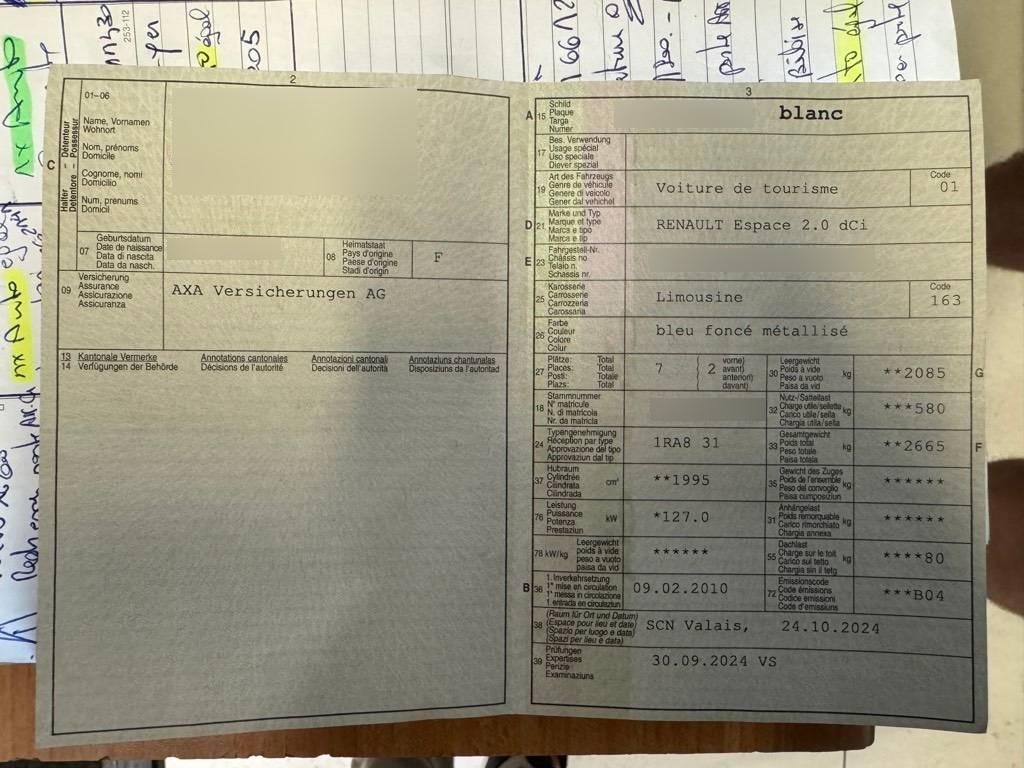 2
01–06
Halter – Détenteur
Detentore – Possessur
C
Name, Vornamen
Wohnort
Nom, prénoms
Domicile
Cognome, nomi
Domicilio
Num, prenums
Domicil
07
Geburtsdatum
Date de naissance
Data di nascita
Data da nasch.
08
Heimatstaat
Pays d'origine
Paese d'origine
Stadi d'origin
F
09
Versicherung
Assurance
Assicurazione
Assicuranza
AXA Versicherungen AG
13 Kantonale Vermerke Annotations cantonales Annotazioni cantonali Annotaziuns chantunales
14 Verfügungen der Behörde Décisions de l'autorité Decisioni dell'autorità Disposiziuns da l'autoritad
3
A 15
Schild
Plaque
Targa
Numer
blanc
17
Bes. Verwendung
Usage spécial
Uso speciale
Diever spezial
19
Art des Fahrzeugs
Genre de véhicule
Genere di veicolo
Gener dal vehichel
Voiture de tourisme
Code
01
D 21
Marke und Typ
Marque et type
Marca e tipo
Marca e tip
RENAULT Espace 2.0 dCi
E 23
Fahrgestell-Nr.
Châssis no
Telaio n.
Schassis nr.
25
Karosserie
Carrosserie
Carrozzeria
Carossaria
Limousine
Code
163
26
Farbe
Couleur
Colore
Colur
bleu foncé métallisé
27
Plätze: Total
Places: Total
Posti: Totale
Plazs: Total
7
2
vorne)
avant)
anteriori)
davant)
30
Leergewicht
Poids à vide
Peso a vuoto
Paisa da vid
kg
**2085
G
18
Stammnummer
N° matricule
N. di matricola
Nr. da matricla
32
Nutz-/Sattellast
Charge utile/sellette
Carico utile/sella
Chargia utila/sella
kg
***580
24
Typengenehmigung
Réception par type
Approvazione del tipo
Approvaziun dal tip
1RA8 31
33
Gesamtgewicht
Poids total
Peso totale
Paisa totala
kg
**2665
F
37
Hubraum
Cylindrée
Cilindrata
Cilindrada
cm³
**1995
35
Gewicht des Zuges
Poids de l'ensemble
Peso del convoglio
Paisa cumposiziun
kg
******
76
Leistung
Puissance
Potenza
Prestaziun
kW
*127.0
31
Anhängelast
Poids remorquable
Carico rimorchiato
Chargia annexa
kg
******
78 kW/kg
Leergewicht
poids à vide
peso a vuoto
paisa da vid
******
55
Dachlast
Charge sur le toit
Carico sul tetto
Chargia sin il tetg
kg
****80
B 36
1. Inverkehrsetzung
1re mise en circulation
1a messa in circolazione
1. entrada en circulaziun
09.02.2010
72
Emissionscode
Code émissions
Codice emissioni
Code d'emissiuns
***B04
38
(Raum für Ort und Datum)
(Espace pour lieu et date)
(Spazio per luogo e data)
(Spazi per lieu e data)
SCN Valais, 24.10.2024
39
Prüfungen
Expertises
Perizie
Examinaziuns
30.09.2024 VS
253-112